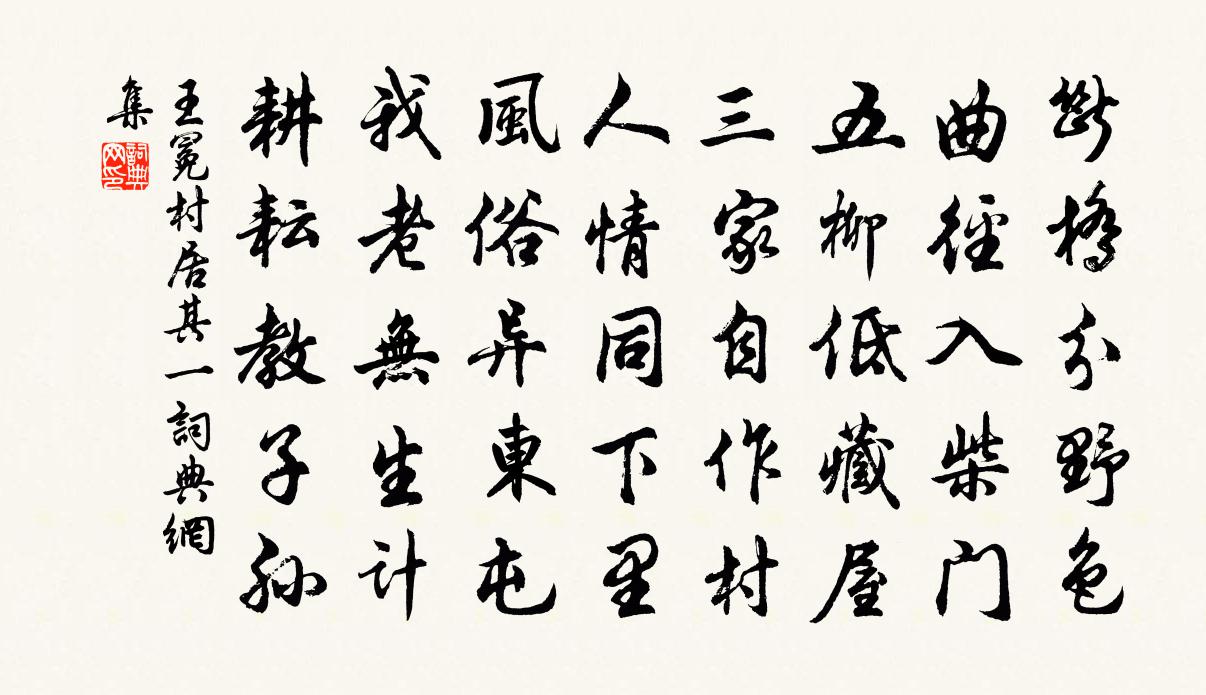 斷橋分野色
曲徑入柴门
五柳低藏屋
三家自作村
人情同下里
風俗异東屯
我老無生計
耕耘教子孙
王冕村居其一詞典網
集
詞典
网印